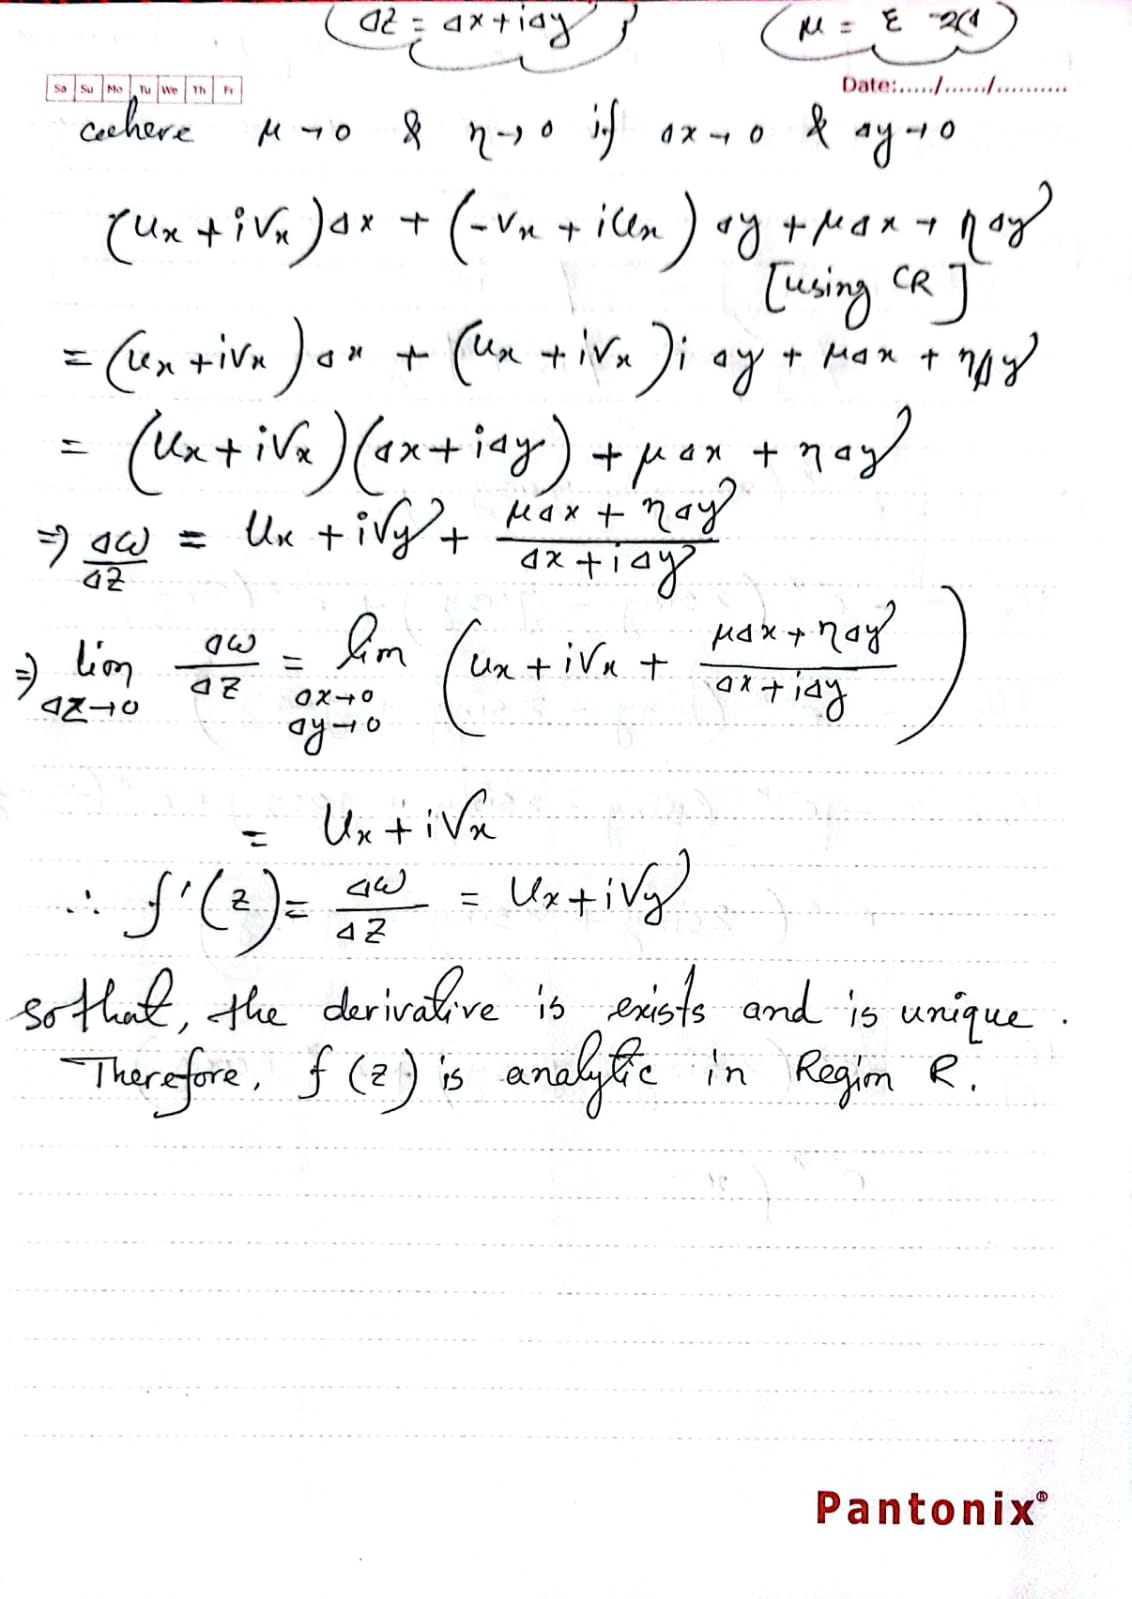 Δz = Δx + iΔy
Sa Su Mo Tu We Th Fr
Date:....../....../..........
where μ → 0 & η → 0 if Δx → 0 & Δy → 0
(Ux + iVx)Δx + (-Vx + iUx)Δy + μΔx + ηΔy
[using CR]
= (Ux + iVx)Δx + (Ux + iVx)iΔy + μΔx + ηΔy
= (Ux + iVx)(Δx + iΔy) + μΔx + ηΔy
⇒ Δω/ΔZ = Ux + iVy + (μΔx + ηΔy)/(Δx + iΔy)
⇒ lim ΔZ→0 Δω/ΔZ = lim Δx→0 Δy→0 (Ux + iVx + (μΔx + ηΔy)/(Δx + iΔy))
= Ux + iVx
∴ f'(z) = Δω/ΔZ = Ux + iVy
so that, the derivative is exists and is unique.
Therefore, f(z) is analytic in Region R.
Pantonix®